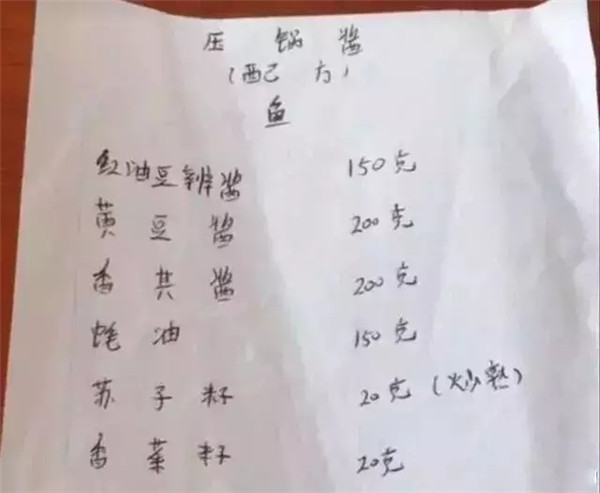 压锅酱
(配方)
鱼
红油豆辨酱 150克
黄豆酱 200克
香其酱 200克
蚝油 150克
苏子籽 20克(炒熟)
香菜籽 20克